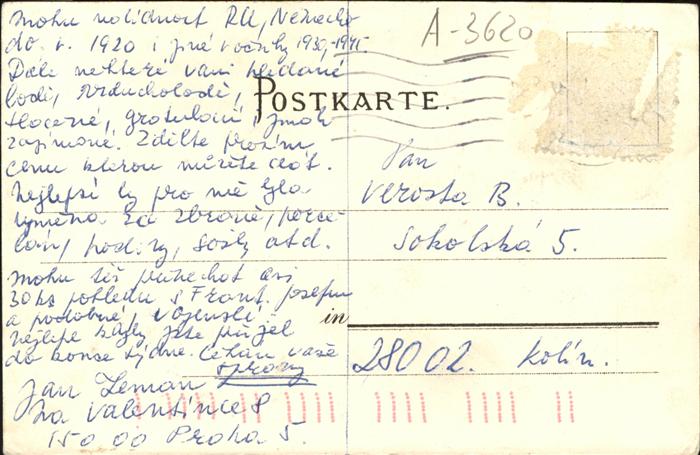 mohu nabídnout RU, Německo
do r. 1920 i jiné ročníky 1939-1945.
Dále některé vámi hledané
lodi, vzducholodě,
tlačené, gratulační, jinak
zajímavé. Sdělte prosím
cenu kterou můžete dát.
Nejlepší by pro mě byla
výměna za zbraně, porce-
lán, podj. sošky atd.
mohu též přenechat asi
30 ks pohledů s Frant. Josefem
a podobné, vojenské.
Nejlépe kdyby jste přijel
do konce týdne. Čekám vaše
zprávy
Jan Zeman
Na Valentince 8
150 00 Praha 5.
A-3620
POSTKARTE.
Pan
Verosta B.
Sokolská 5.
in
280 02. Kolín.